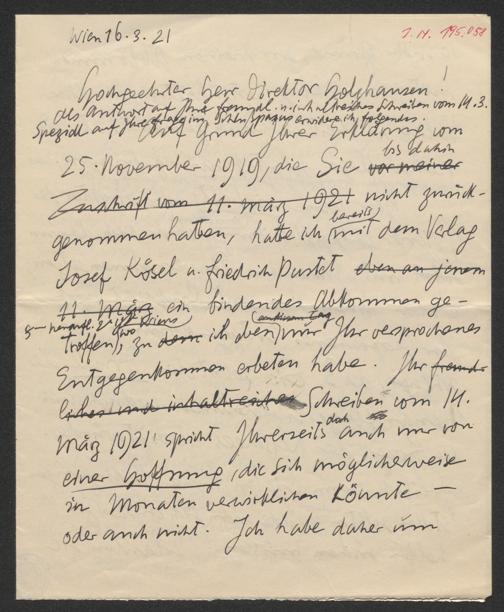 Wien 16.3.21
I.N. 195.058
Hochgeehrter Herr Direktor Holzhausen!
als Antwort auf Ihr freundl. u. inhaltreiches Schreiben vom 14.3.
Speziell auf Ihre erwidere ich folgendes.
Auf Grund Ihrer Erklärung vom
bis dahin
25. November 1919, die Sie vor meiner
Zuschrift vom 11. März 1921 nicht zurück-
genommen hatten, hatte ich bereits mit dem Verlag
Josef Kösel u. Friedrich Pustet eben an jenem
11. März ein bindendes Abkommen ge-
troffen, zu dem ich eben nur Ihr versprochenes
Entgegenkommen erbeten habe. Ihr freund-
liches und inhaltreiches Schreiben vom 14.
März 1921 spricht Ihrerseits doch auch nur von
einer Hoffnung, die sich möglicherweise
in Monaten verwirklichen könnte –
oder auch nicht. Ich habe daher um